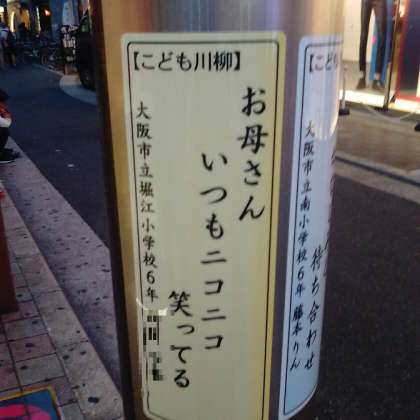 【こども川柳】
お母さん
いつもニコニコ
笑ってる
大阪市立堀江小学校6年
【こど
待ち合わせ
大阪市立南小学校6年 藤本りん